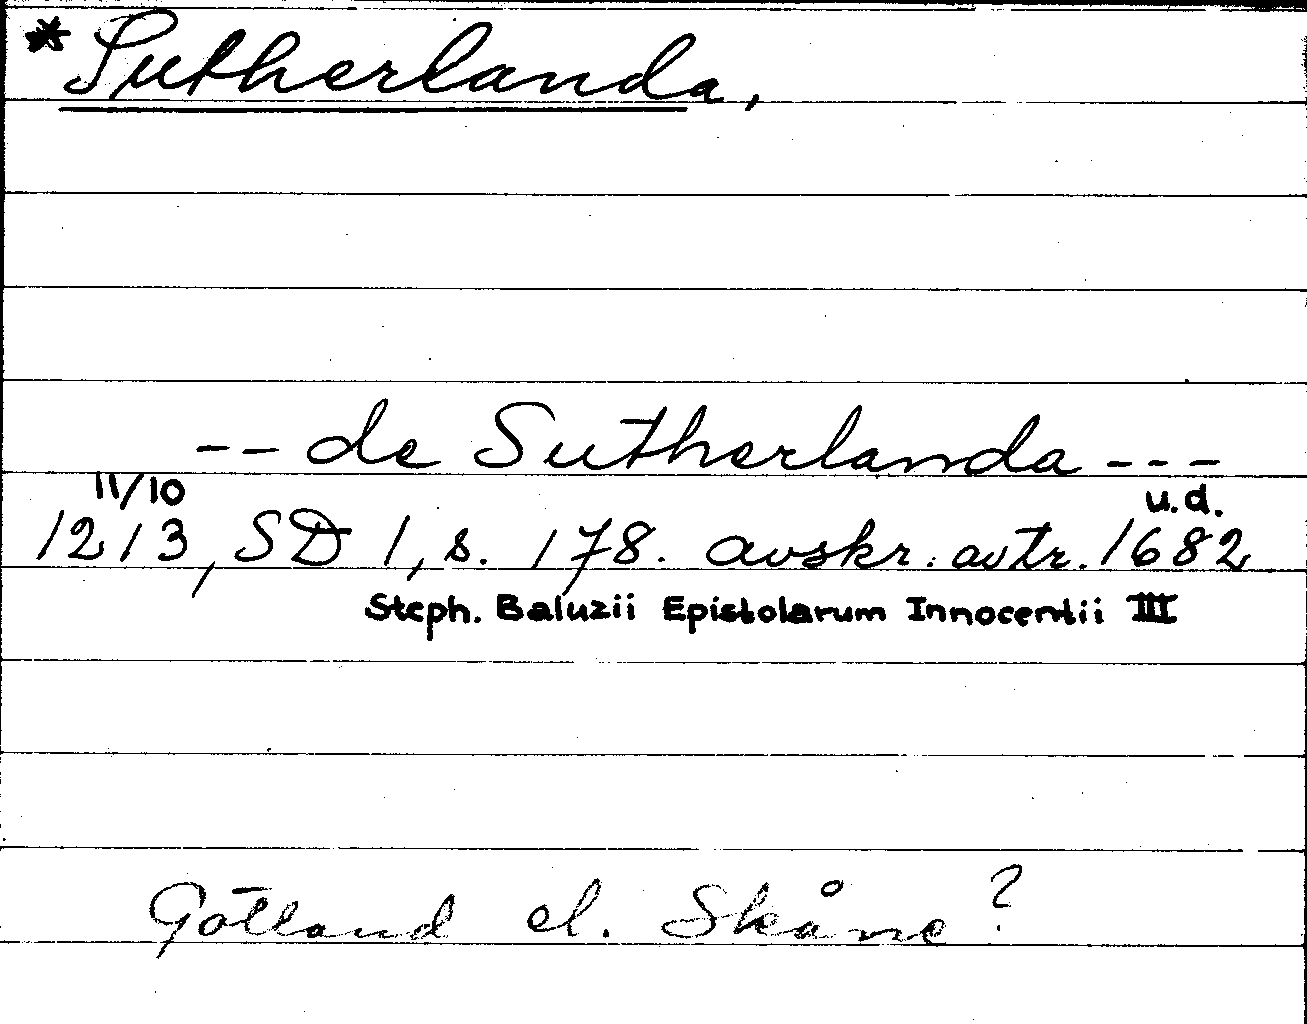 *Sutherlanda,
-- de Sutherlanda ---
11/10 u.d.
1213, SD 1, s. 178. avskr. avtr. 1682
Steph. Baluzii Epistolarum Innocentii III
Gotland el. Skåne?